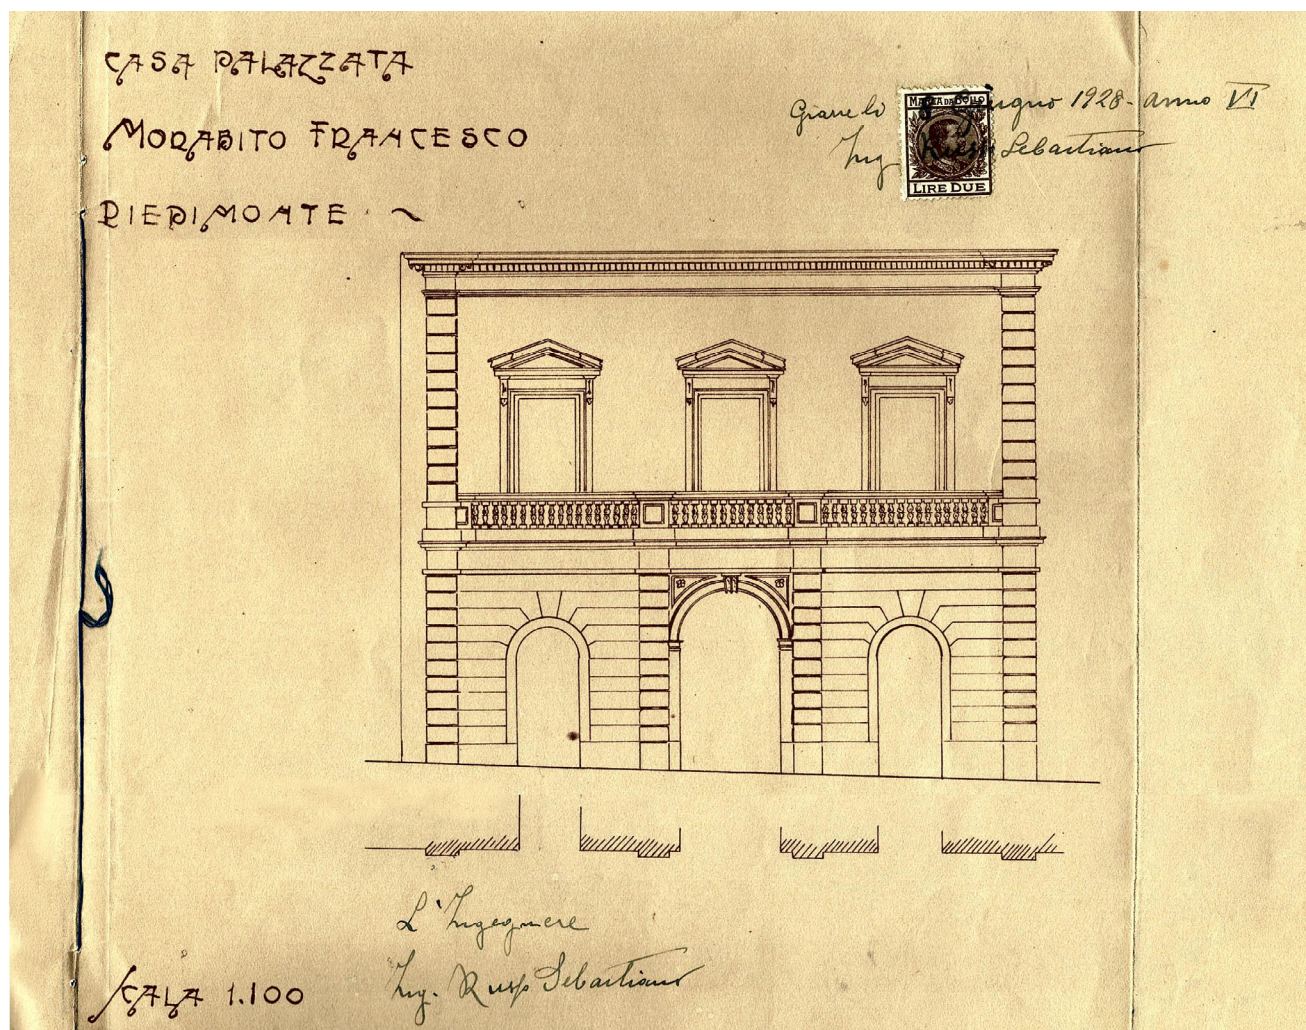 CASA PALAZZATA
MORABITO FRANCESCO
PIEDIMONTE
Giarre lì 8 Giugno 1928 - anno VI
Ing Russo Sebastiano
MARCA DA BOLLO
LIRE DUE
L'Ingegnere
Ing. Russo Sebastiano
SCALA 1.100